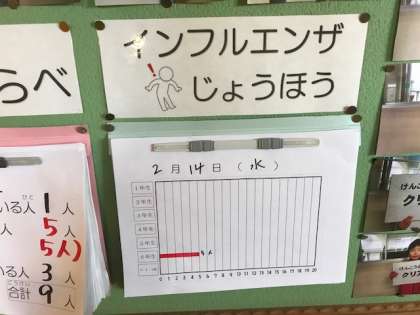 らべ
インフルエンザ
じょうほう
いる人 1人
人 5人
5人)
いる人 3人
合計 9人
2月14日(水)
1年生
2年生
3年生
4年生
5年生
6年生
5人
0 1 2 3 4 5 6 7 8 9 10 11 12 13 14 15 16 17 18 19 20
けんこう
クリ
けんこう
クリス